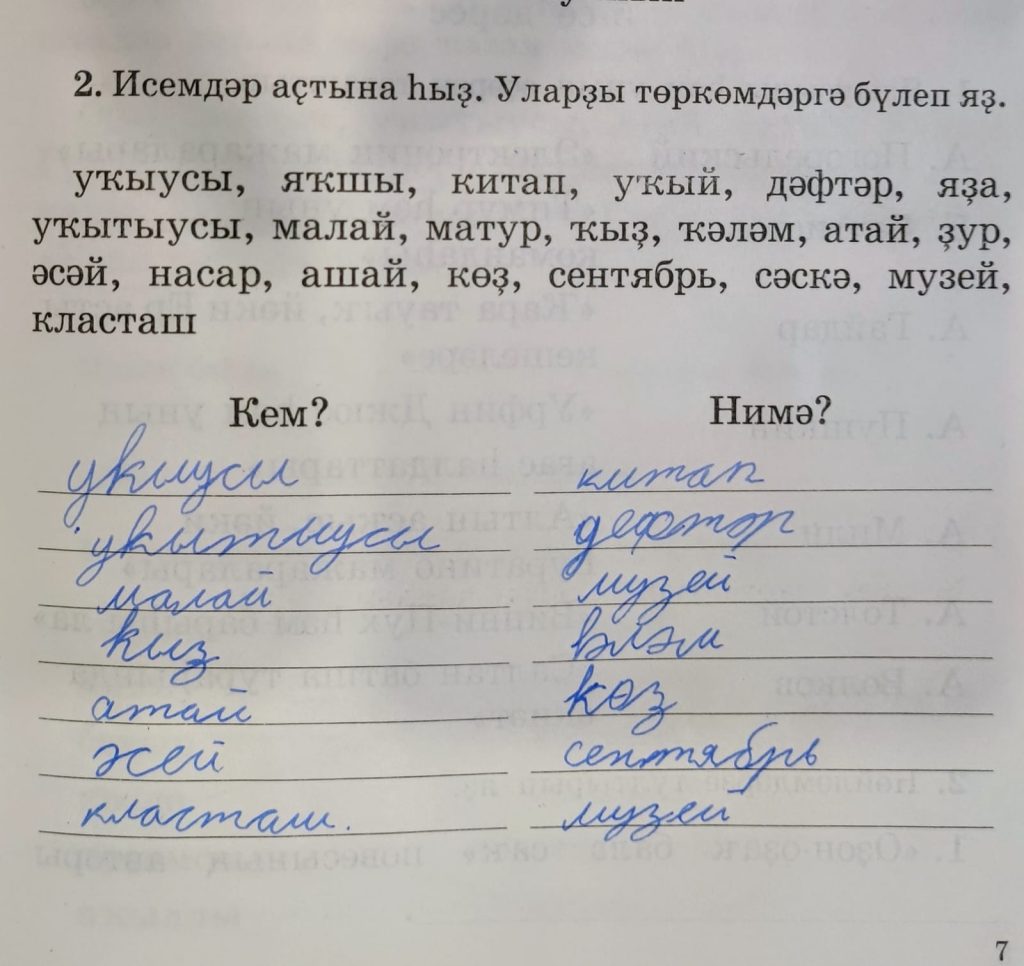 2. Исемдәр аҫтына һыҙ. Уларҙы төркөмдәргә бүлеп яҙ.
уҡыусы, яҡшы, китап, уҡый, дәфтәр, яҙа,
уҡытыусы, малай, матур, ҡыҙ, ҡәләм, атай, ҙур,
әсәй, насар, ашай, көҙ, сентябрь, сәскә, музей,
класташ
Кем? Нимә?
укыусы китап
укытыусы дефтәр
малай музей
кыз вләм
атай көз
әсей сентябрь
класташ. музей
7